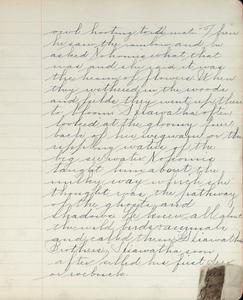 owl hooting to its mate. Then
he saw the rainbow and he
asked Nokomis what that
was and she said it was
the heaven of flowers. When
they withered in the woods
and fields they went up there
to bloom. Hiawatha often
looked at the gloomy pines
back of his wigwam or the
rippling water of the
big sea water. Nokomis
taught him about the
milky way which she
thought was the pathway
of the ghosts and
shadows. He knew all about
the wild birds & animals
and called them Hiawatha
Brothers. Hiawatha soon
after killed his first deer
or roebuck.